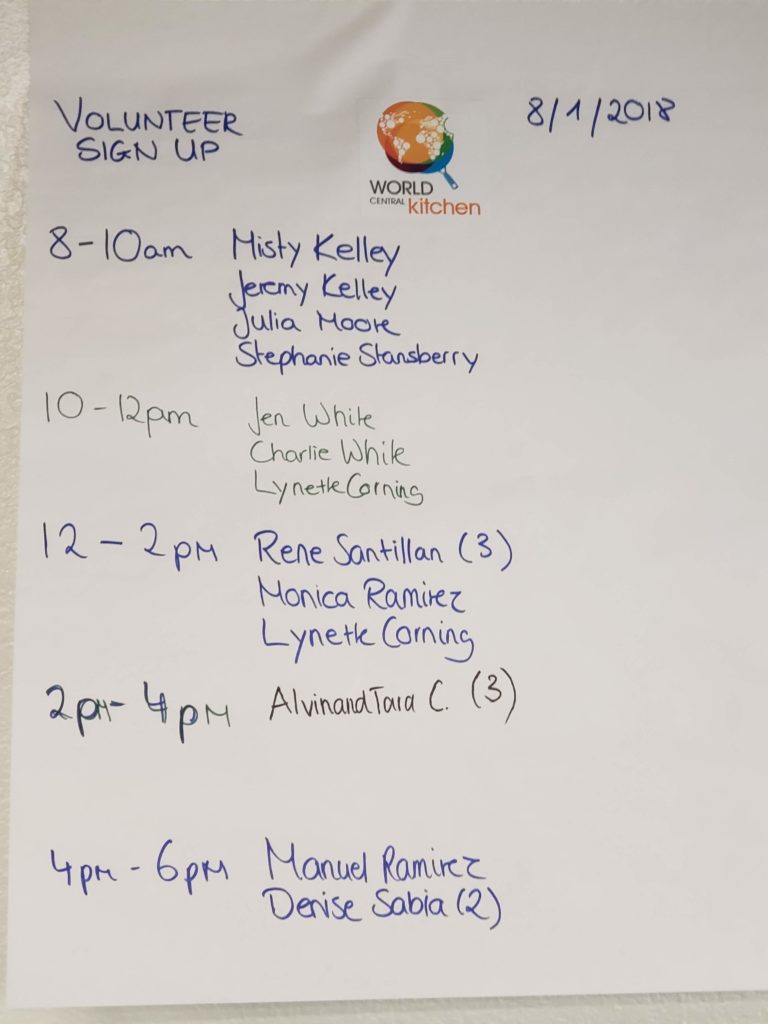 VOLUNTEER
SIGN UP
8/1/2018
WORLD
CENTRAL kitchen
8-10am Misty Kelley
Jeremy Kelley
Julia Moore
Stephanie Stansberry
10-12pm Jen White
Charlie White
Lynette Corning
12-2PM Rene Santillan (3)
Monica Ramirez
Lynette Corning
2PM-4PM Alvin and Tara C. (3)
4PM-6PM Manuel Ramirez
Denise Sabia (2)